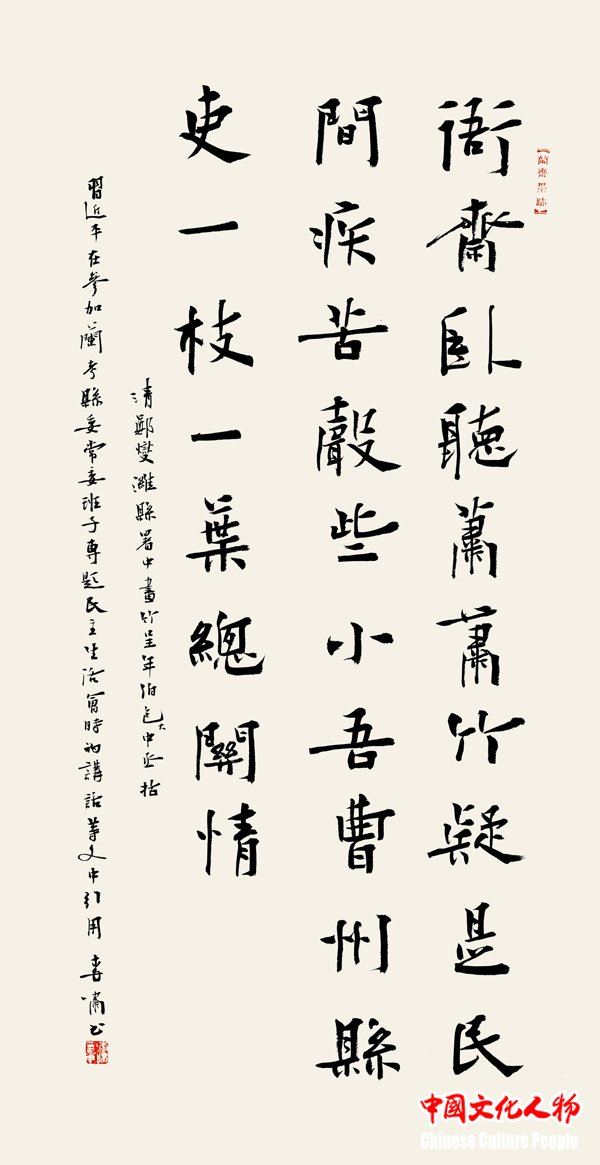 【蘭齋墨跡】
衙齋臥聽蕭蕭竹疑是民
間疾苦聲些小吾曹州縣
吏一枝一葉總關情
清鄭燮濰縣署中畫竹呈年伯包大中丞括
習近平在參加蘭考縣委常委班子專題民主生活會時的講話等文中引用 春嘯书
中國文化人物
Chinese Culture People